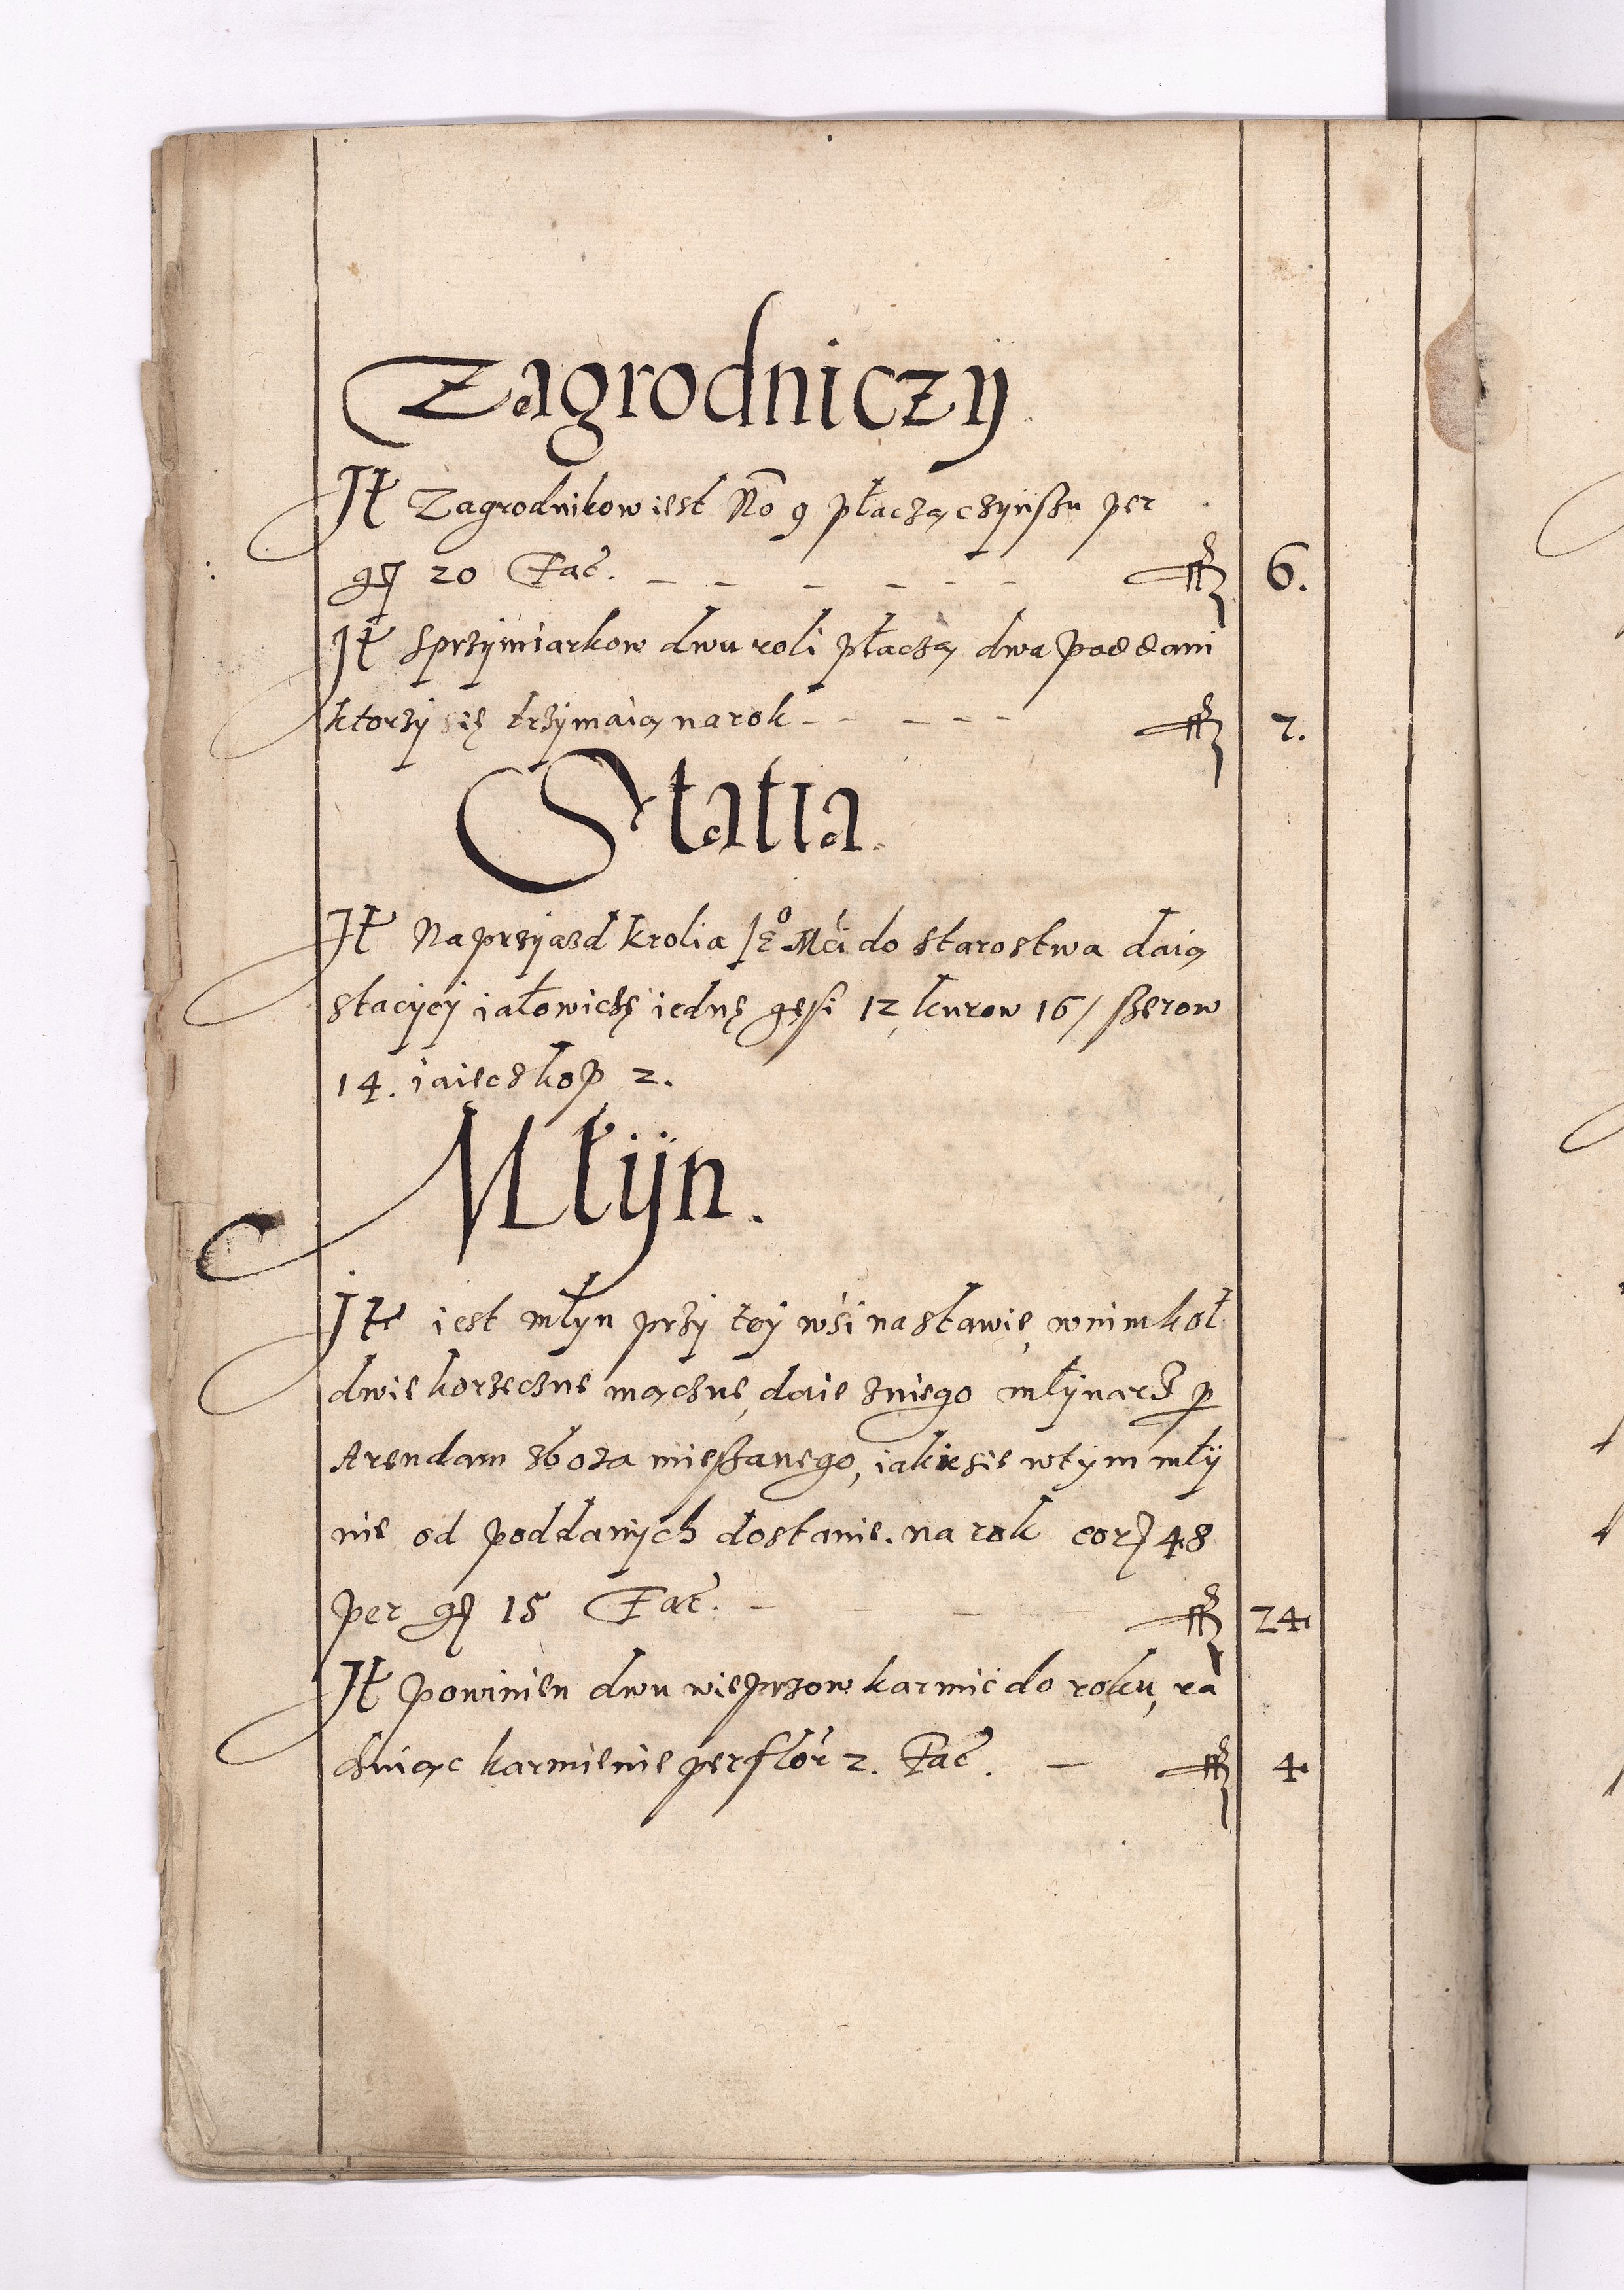 Zagrodniczy
It Zagrodnikow iest No 9 płaczą czynszu per
gr 20 Fac. – – – – – – fl 6.
It sprzymiarkow dwu roli płaczą dwa poddani
ktorzy się trzymaią na rok – – – – – fl 2.
Statia.
It Na przyazd krolia Je° Mći do starostwa daią
stacyey iałowiczę iednę gęsi 12, kurow 16/ szerow
14. iaiec kop 2.
Młyn.
It iest młyn przy tey wśi na stawie, wnim koł
dwie korzeczne mączne, daie zniego młynarz p
Arendam zboza mieszanego, iakie sie wtym mły
nie od poddanych dostanie. na rok cor 48
per gr 15 Fac. – – – – fl 24.
It powinien dwu wieprzow karmić do roku, ra
chuiąc karmienie per flor 2. Fac. – fl 4